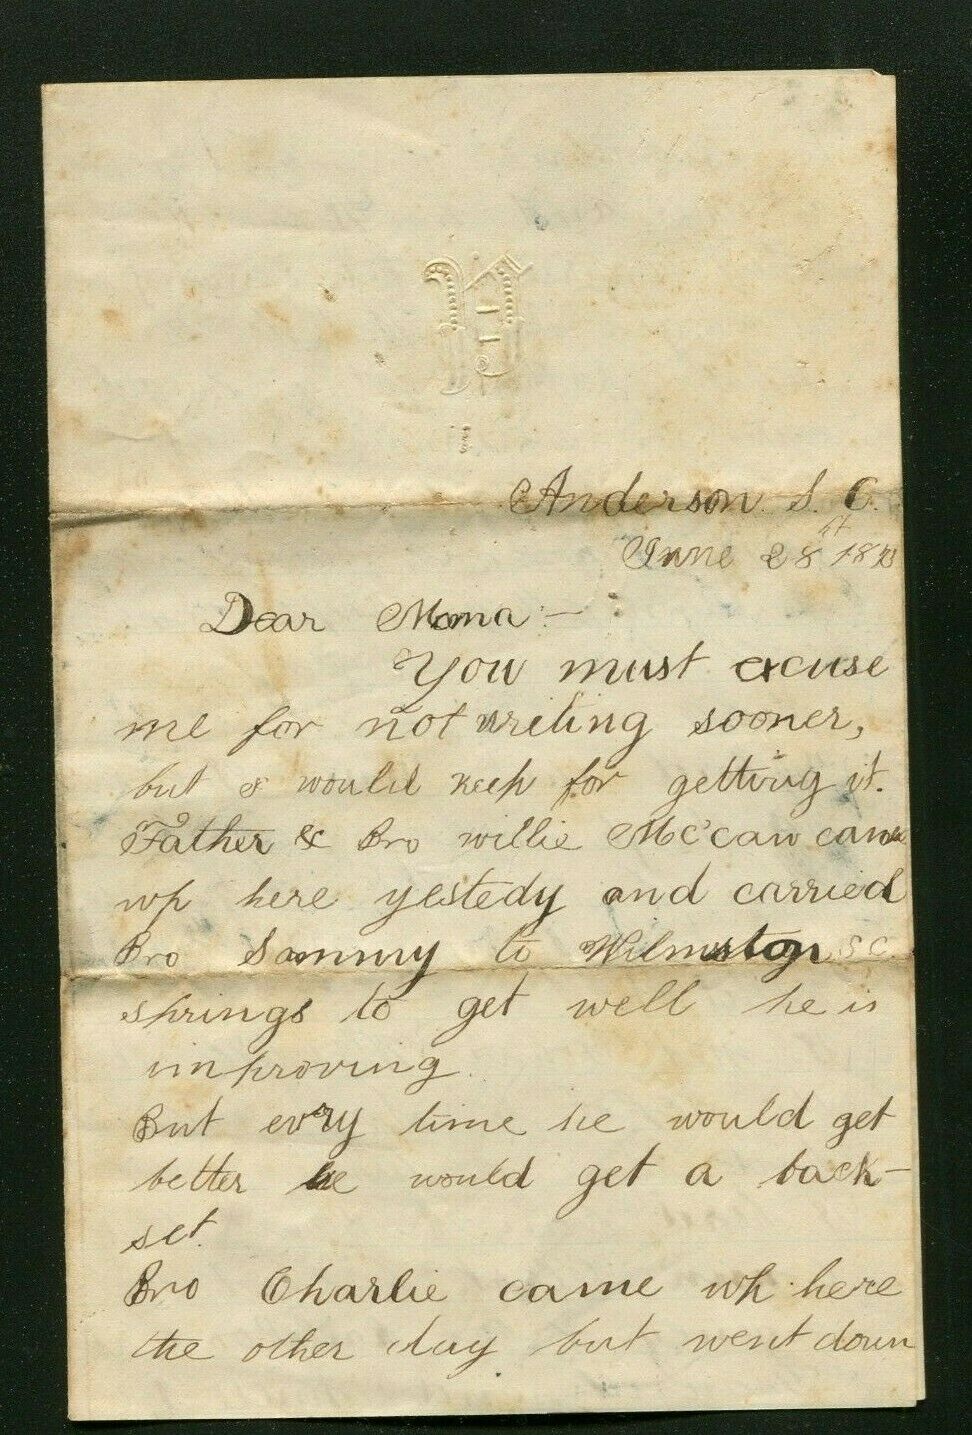 Anderson. S. C.
June 28 18
Dear Mama:—
You must excuse
me for not writing sooner,
but I would keep for getting it.
Father & Bro willie McCaw came
up here yestedy and carried
Bro Sammy to S C.
springs to get well he is
improving.
But evry time he would get
better he would get a back-
set.
Bro Charlie came up here
the other day but went down